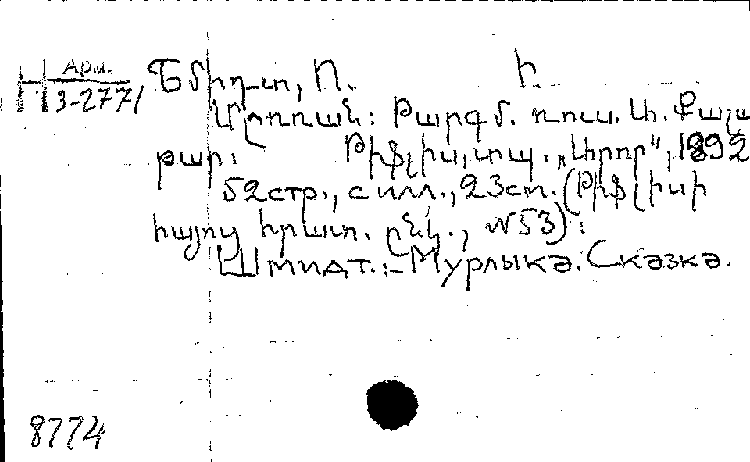 Арм. Շմիդտ, Ռ. Ի.
3-2771
Մլռռան: Թարգմ. ռուս. Ա. Քալա
թար: Թիֆլիս, տպ. „Արոր“, 1892
52стр., с илл., 23см. (Թիֆլիսի
հայոց հրատ. ընկ., №53):
Шмидт.:-Мурлыка. Сказка.
8774